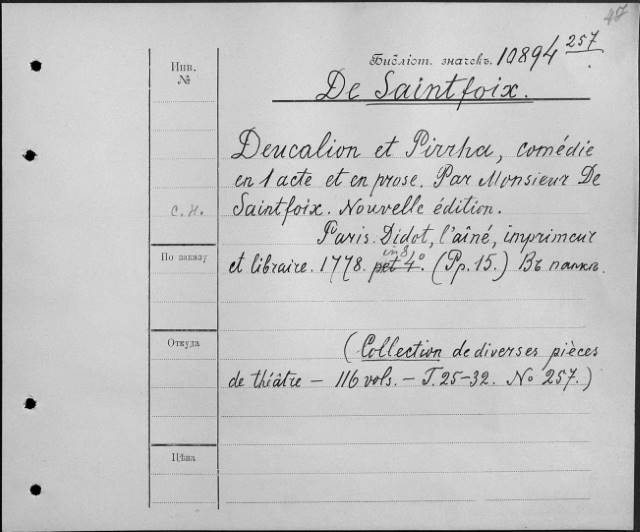 47
Инв.
№
Библіот. значекъ. 10894 257
De Saintfoix.
Deucalion et Pirrha, comédie
en 1 acte et en prose. Par Monsieur De
с. н.
Saintfoix. Nouvelle édition.
Paris. Didot, l'aîné, imprimeur
in 8
По заказу
et libraire. 1778. pet 4º. (Pp. 15.) Въ папкѣ.
Откуда
(Collection de diverses pièces
de théâtre — 116 vols. — T. 25-32. No 257.)
Цѣна